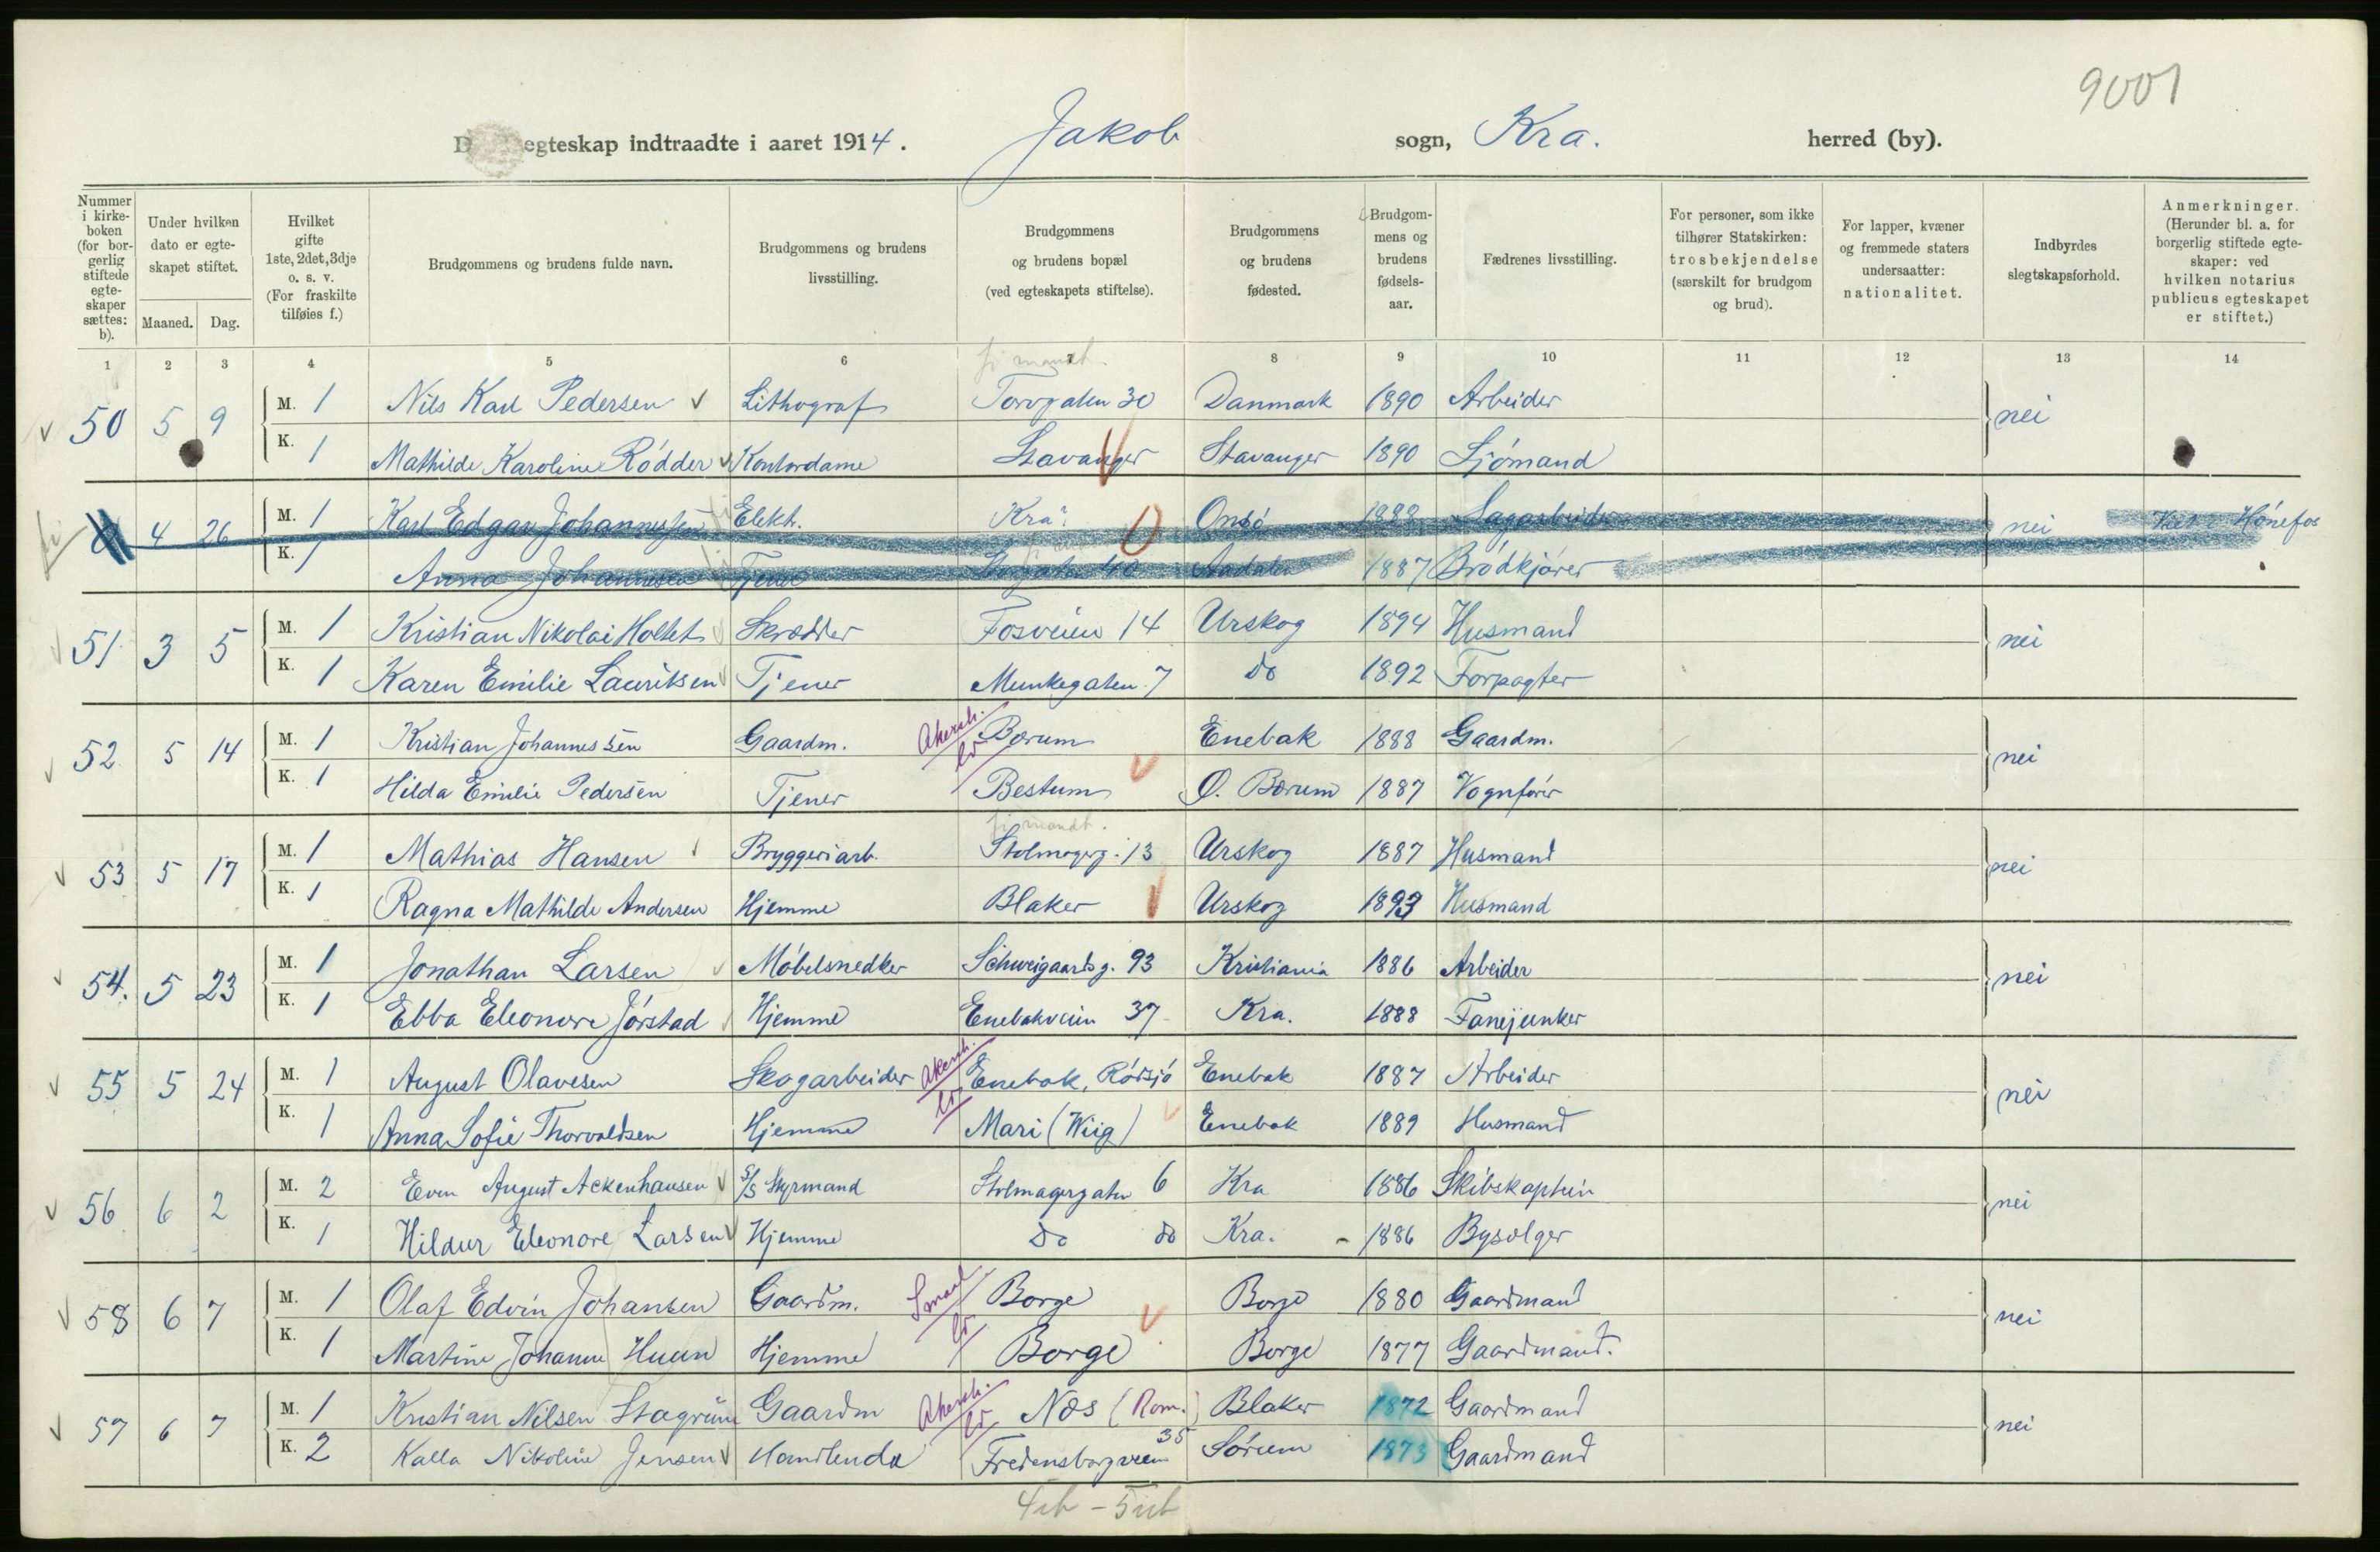 9001
egteskap indtraadte i aaret 1914. Jakob sogn, Kra. herred (by).
Nummer i kirkeboken (for borgerlig stiftede egteskaper sættes: b).
Under hvilken dato er egteskapet stiftet.
Maaned. Dag.
Hvilket gifte 1ste, 2det, 3dje o. s. v. (For fraskilte tilføies f.)
Brudgommens og brudens fulde navn.
Brudgommens og brudens livsstilling.
Brudgommens og brudens bopæl (ved egteskapets stiftelse).
Brudgommens og brudens fødested.
Brudgommens og brudens fødselsaar.
Fædrenes livsstilling.
For personer, som ikke tilhører Statskirken: trosbekjendelse (særskilt for brudgom og brud).
For lapper, kvæner og fremmede staters undersaatter: nationalitet.
Indbyrdes slegtskapsforhold.
Anmerkninger. (Herunder bl. a. for borgerlig stiftede egteskaper: ved hvilken notarius publicus egteskapet er stiftet.)
1 2 3 4 5 6 7 8 9 10 11 12 13 14
50 5 9 M. 1 Nils Karl Pedersen Lithograf Torvgaten 30 Danmark 1890 Arbeider nei
K. 1 Mathilde Karoline Rödder Kontordame Stavanger Stavanger 1890 Sjömand
4 26 M. 1 Karl Edgar Johannessen Elekt. Kra. Onsö 1888 Sagarbeider nei Hönefos
K. 1 Anna Johannesen Tjener 40 Aadalen 1887 Brödkjörer
51 3 5 M. 1 Kristian Nikolai Holtet Skrædder Fosveien 14 Urskog 1894 Husmand nei
K. 1 Karen Emilie Lauritsen Tjener Munkegaten 7 do 1892 Forpagter
52 5 14 M. 1 Kristian Johannessen Gaardm. Akersh. Bærum Enebak 1888 Gaardm. nei
K. 1 Hilda Emilie Pedersen Tjener Bestum Ø. Bærum 1887 Vognförer
53 5 17 M. 1 Mathias Hansen Bryggeriarb. Stolmagerg. 13 Urskog 1887 Husmand nei
K. 1 Ragna Mathilde Andersen Hjemme Blaker Urskog 1893 Husmand
54. 5 23 M. 1 Jonathan Larsen Möbelsnedker Schweigaardsg. 93 Kristiania 1886 Arbeider nei
K. 1 Ebba Eleonore Jörstad Hjemme Enebakveien 37 Kra. 1888 Fanejunker
55 5 24 M. 1 August Olavesen Skogarbeider Akersh. Enebak, Rödsjö Enebak 1887 Arbeider nei
K. 1 Anna Sofie Thorvaldsen Hjemme Mari (Wiig) Enebak 1889 Husmand
56 6 2 M. 2 Even August Ackenhausen S/S Styrmand Stolmagergaten 6 Kra 1886 Skibskaptein nei
K. 1 Hildur Eleonore Larsen Hjemme do do Kra. 1886 Bysælger
58 6 7 M. 1 Olaf Edvin Johansen Gaardm. Smaal. Borge Borge 1880 Gaardmand nei
K. 1 Martine Johanne Huun Hjemme Borge Borge 1877 Gaardmand.
57 6 7 M. 1 Kristian Nilsen Gaardm Akersh. Næs (Rom.) Blaker 1872 Gaardmand nei
K. 2 Kalla Nikoline Jensen Handlende Fredensborgveien 35 Sörum 1873 Gaardmand